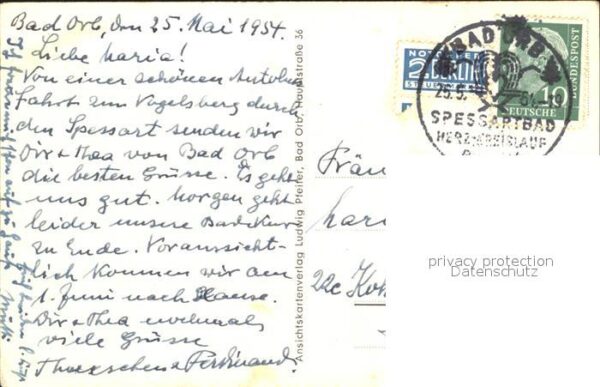 Bad Orb, den 25. Mai 1954.
Liebe Maria!
Von einer schönen Autobus
fahrt zum Vogelsberg durch
den Spessart senden wir
Dir + Thea von Bad Orb
die besten Grüsse. Es geht
uns gut. Morgen geht
leider unsere Badekur
zu Ende. Voraussicht-
lich kommen wir am
1. Juni nach Hause.
Dir + Thea nochmals
viele Grüsse
Ferdinand.
Ansichtskartenverlag Ludwig Pfeifer, Bad Orb, Hauptstraße 36
NOTOPFER
2 BERLIN
STEUERMARKE
BAD ORB
25.5.
SPESSARTBAD
HERZ-KREISLAUF
DEUTSCHE
BUNDESPOST
10
Fräu
Mari
22c
privacy protection
Datenschutz